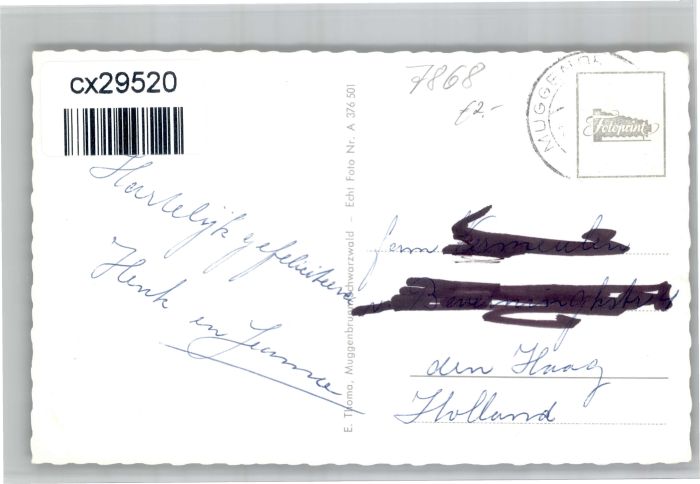 cx29520
7868
€2.-
MUGGENB
Fotoprint
Hartelijk gefeliciteerd
Henk en
E. Thoma, Muggenbrunn/Schwarzwald – Echt Foto Nr. A 376 501
fam
den Haag
Holland